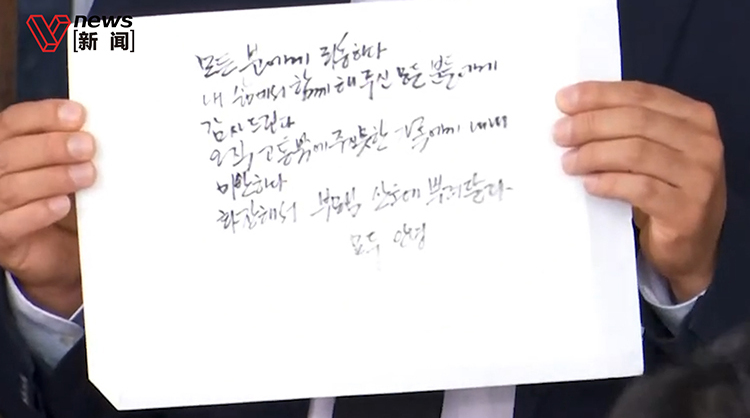 news
[新闻]
모든 분에게 죄송하다
내 삶에서 함께 해 주신 모든 분들에게
감사드린다
오직, 고통밖에 주지 못한 가족에게 내내
미안하다
화장해서 부모님 산소에 뿌려달라.
모두 안녕